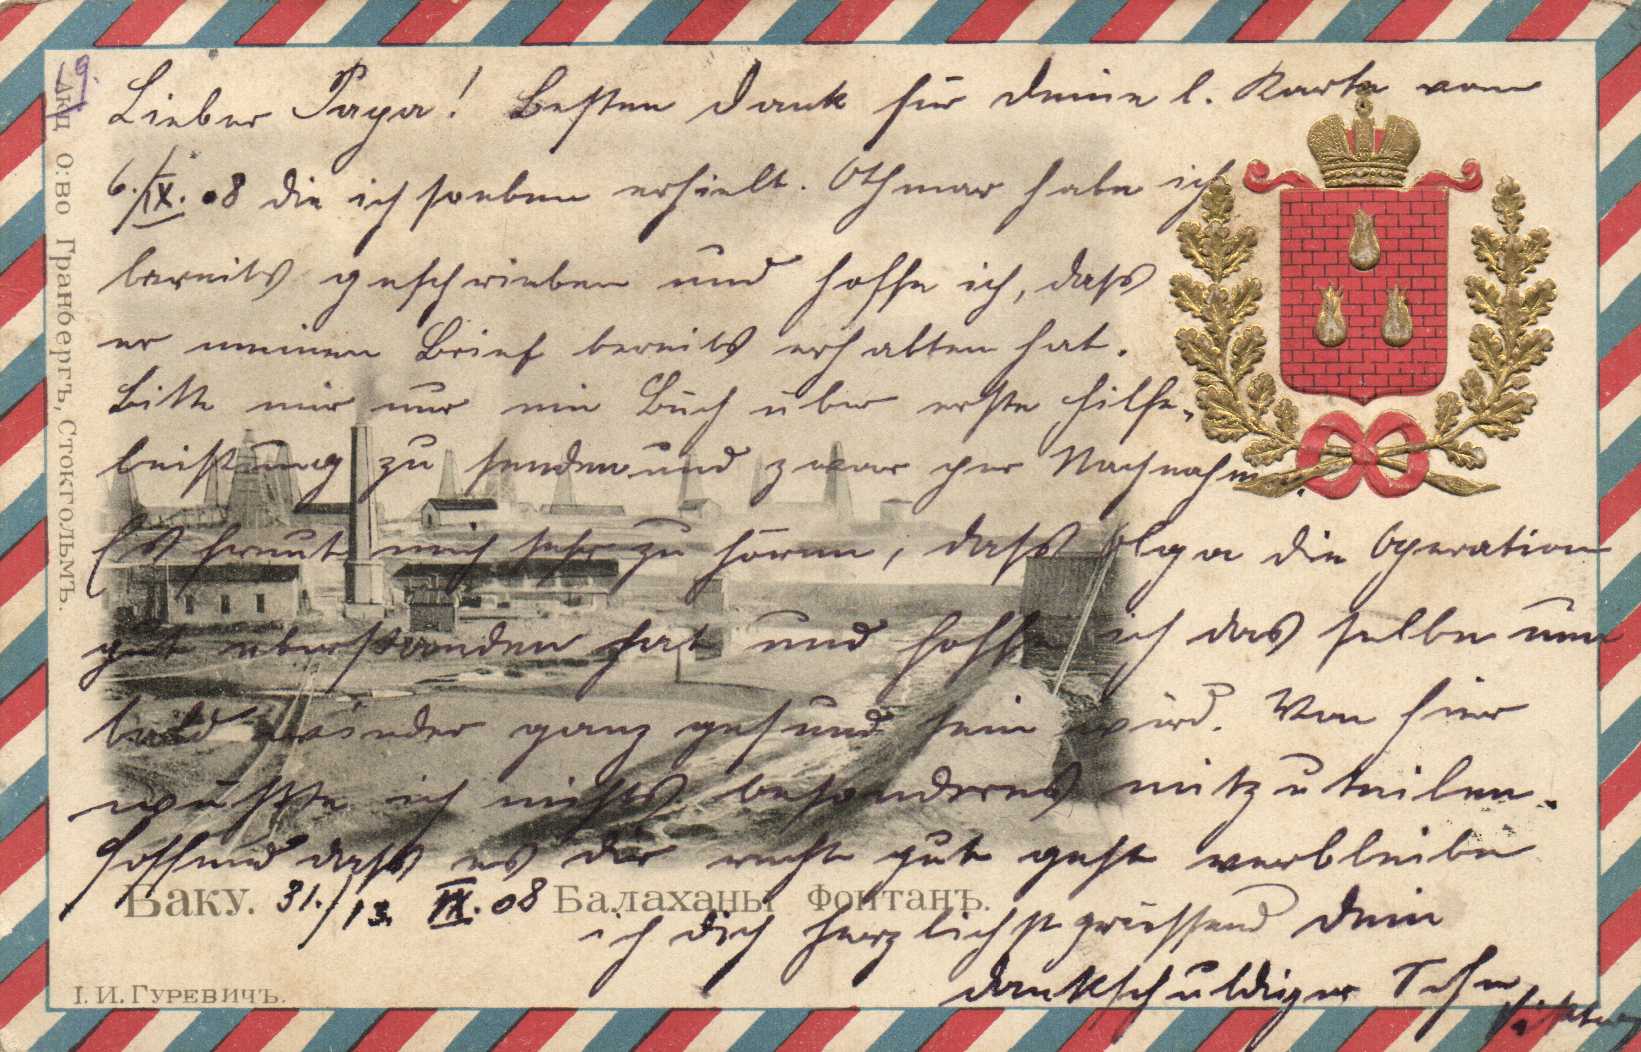 Lieber Papa! Besten Dank für deine l. Karte vom
6./IX. 08 die ich soeben erhielt. Othmar habe ich
bereits geschrieben und hoffe ich, dass
er meinen Brief bereits erhalten hat.
Bitte mir nur ein Buch über erste Hilfe-
leistung zu senden und zwar per Nachnahme.
Es freut mich sehr zu hören, dass Olga die Operation
gut überstanden hat und hoffe ich dasselbe nun
bald wieder ganz gesund sein wird. Von hier
wüsste ich nichts besonderes mitzuteilen.
Hoffend dass es dir recht gut geht verbleibe
Баку. 31./13. IX. 08 Балаханы Фонтанъ.
ich dich herzlichst grüssend dein
dankschuldiger Sohn
Viktor
І. И. Гуревичъ.
Акц О:во Гранбергъ, Стокгольмъ.
9.